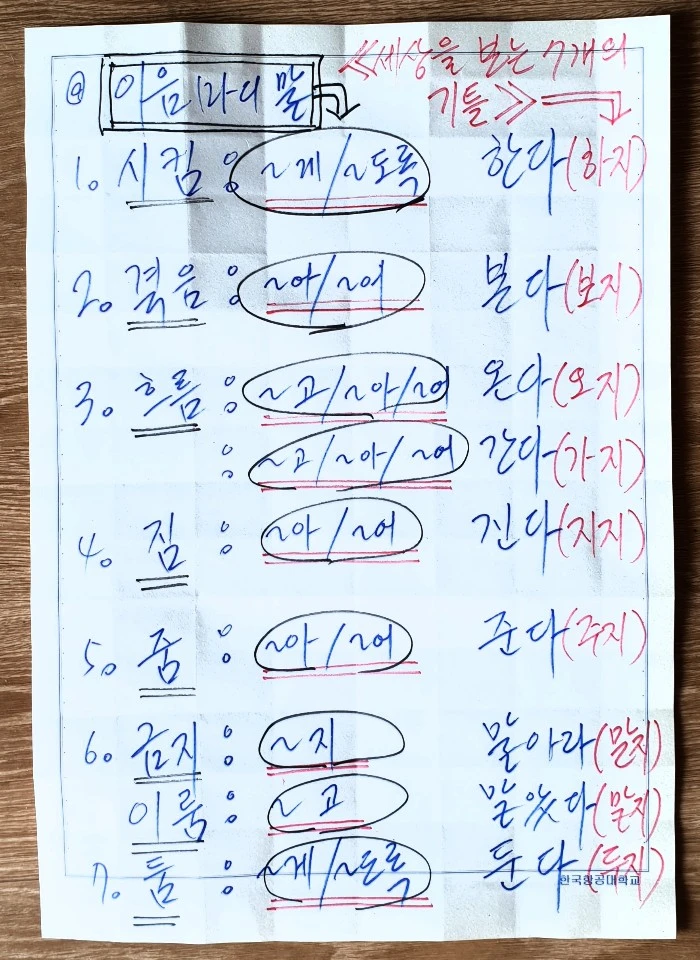 @ 이음마디 말 《세상을 보는 7개의
기틀》
1. 시킴 : ~게/~도록 한다(하지)
2. 겪음 : ~아/~어 본다(보지)
3. 흐름 : ~고/~아/~어 온다(오지)
: ~고/~아/~어 간다(가지)
4. 짐 : ~아/~어 진다(지지)
5. 줌 : ~아/~어 준다(주지)
6. 금지 : ~지 말아라(말지)
이룸 : ~고 말았다(말지)
7. 둠 : ~게/~도록 둔다(두지)
한국항공대학교